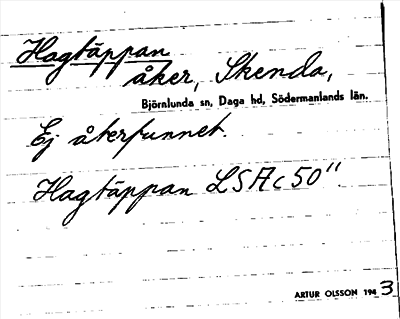 Hagtäppan
åker, Skenda,
Björnlunda sn, Daga hd, Södermanlands län.
Ej återfunnet.
Hagtäppan LSA c 50"
ARTUR OLSSON 1943